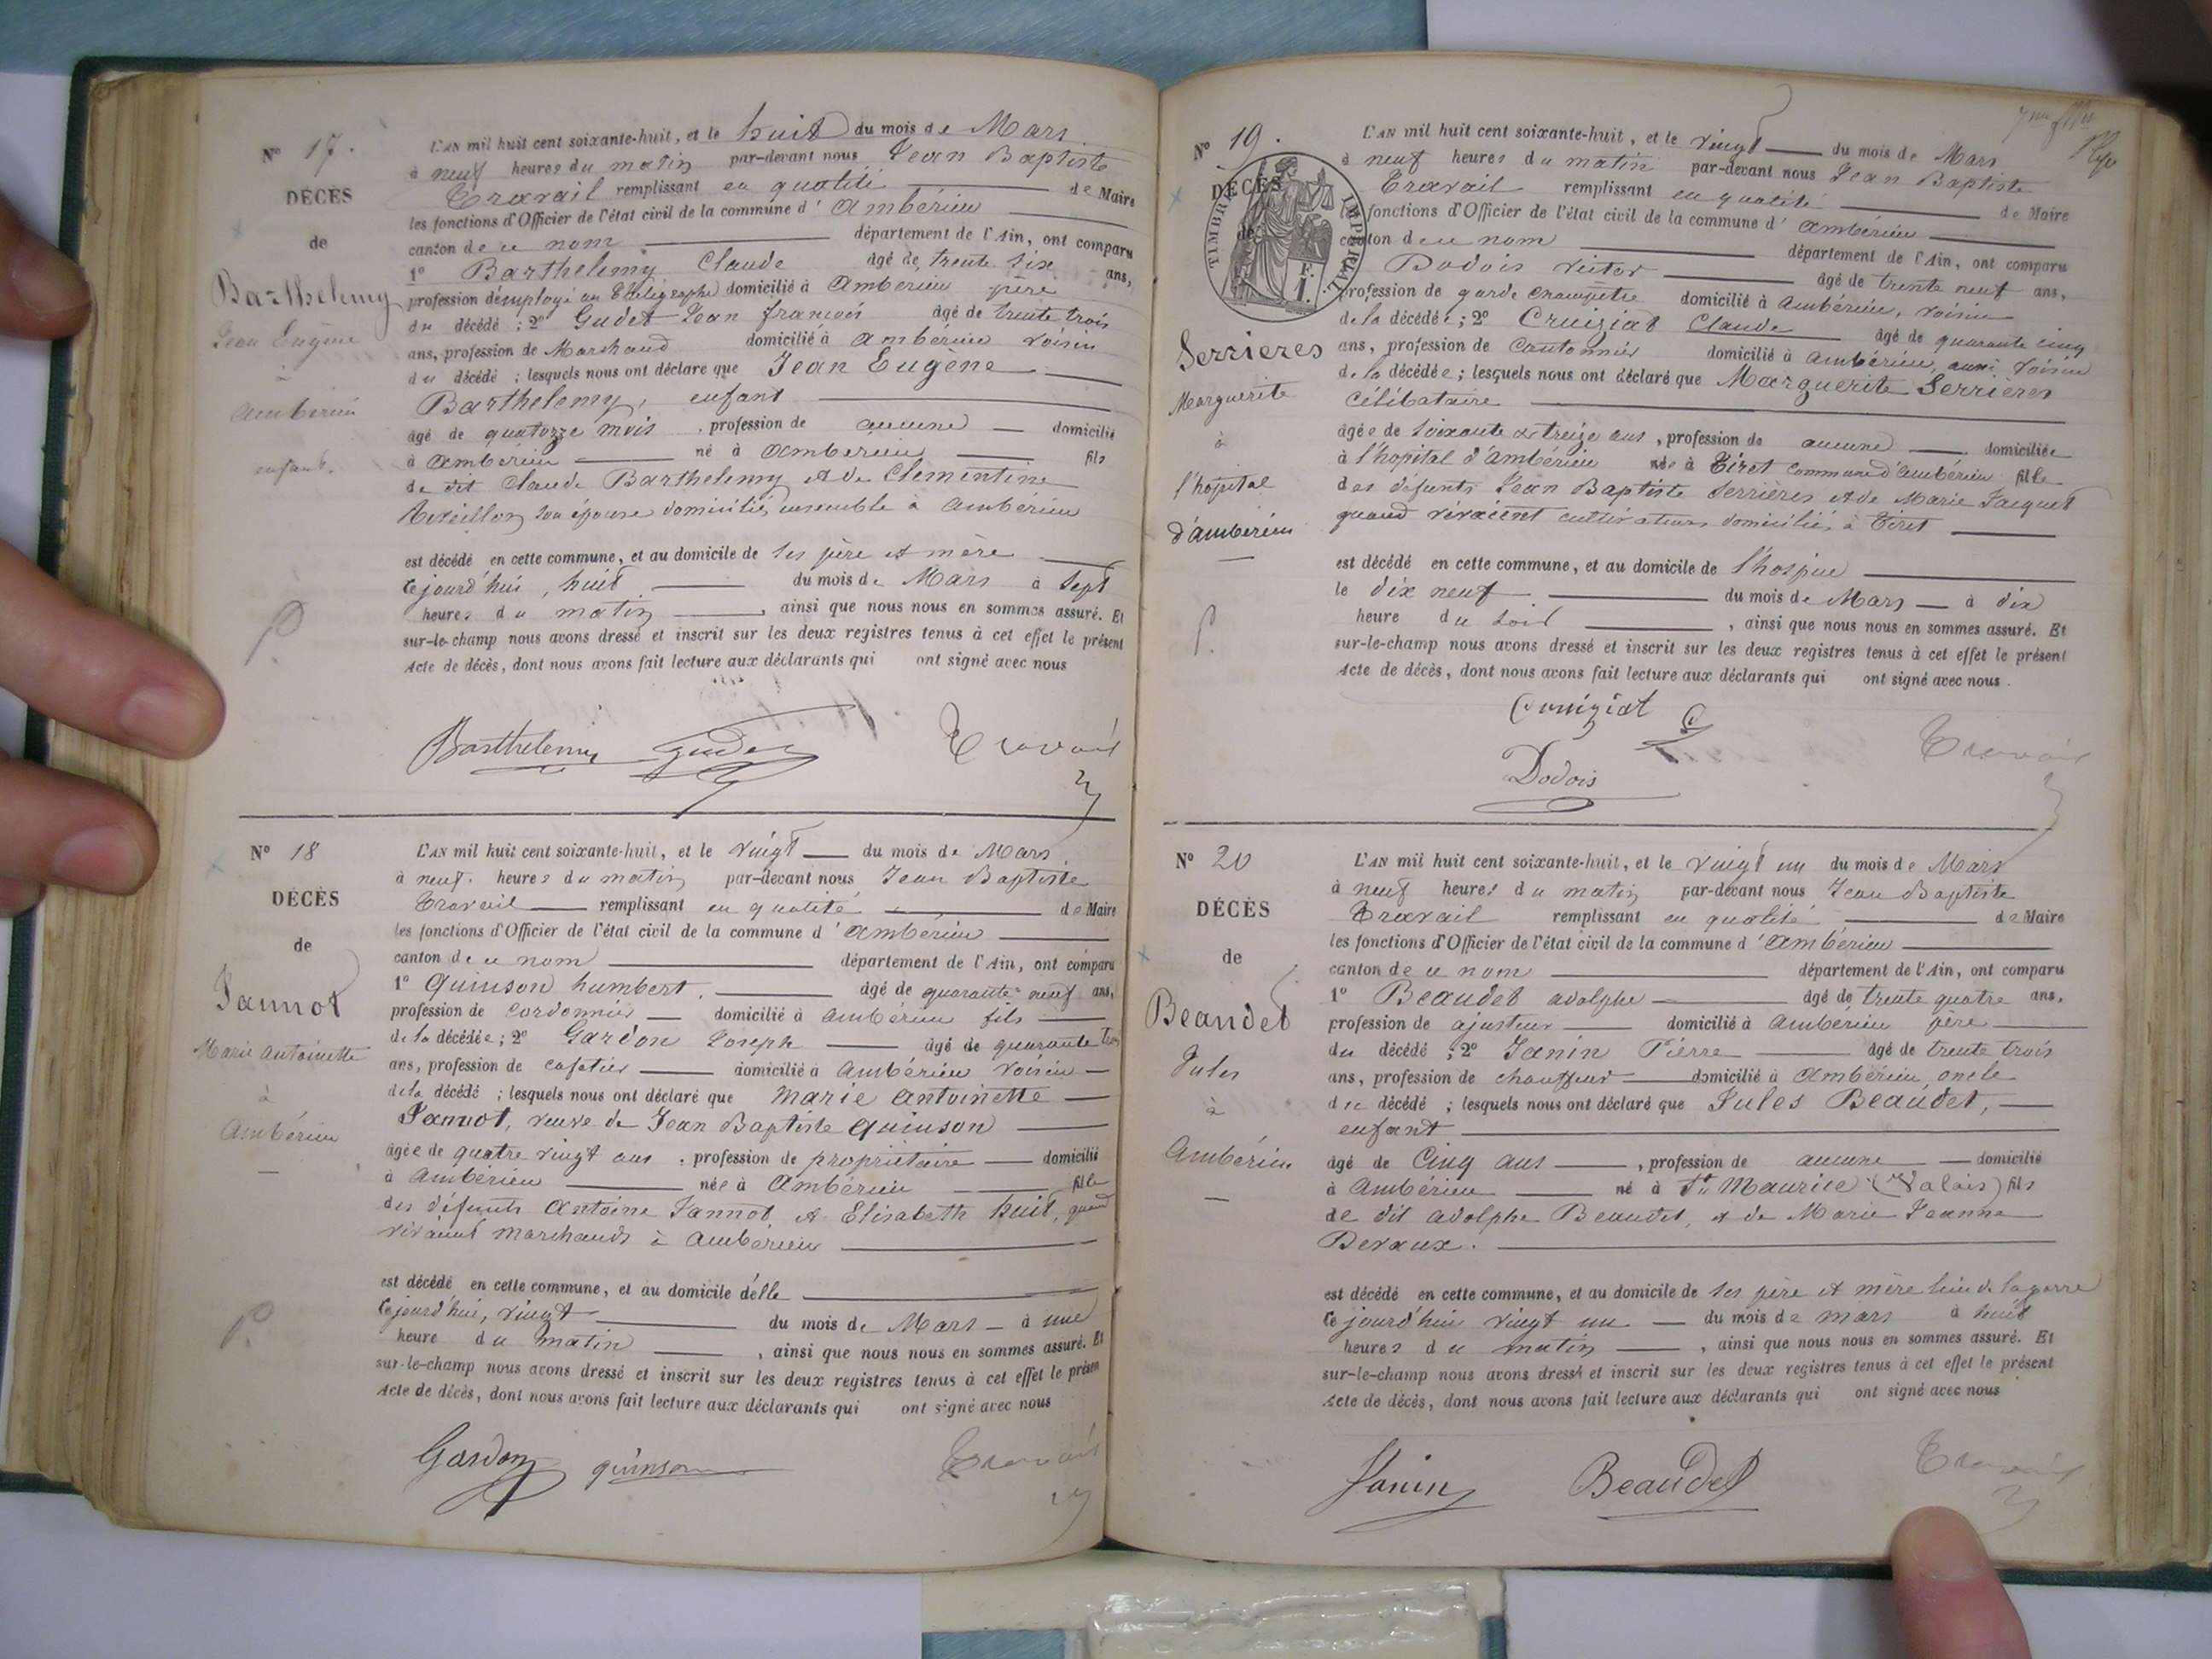 N° 17.
DÉCÈS
de
Barthelemy
Jean Eugène
à
Ambérieu
enfant.
L'AN mil huit cent soixante-huit, et le huit du mois de Mars
à neuf heures du matin par-devant nous Jean Baptiste
Travail remplissant en qualité de Maire
les fonctions d'Officier de l'état civil de la commune d'Ambérieu
canton de ce nom département de l'Ain, ont comparu
1° Barthelemy Claude âgé de trente six ans,
profession d'employé au Télégraphe domicilié à Ambérieu père
du décédé ; 2° Gudet Jean françois âgé de trente trois
ans, profession de Marchand domicilié à Ambérieu voisin
du décédé ; lesquels nous ont déclaré que Jean Eugène
Barthelemy, enfant
âgé de quatorze mois , profession de aucune domicilié
à Ambérieu né à Ambérieu fils
de dit Claude Barthelemy et de Clementine
son épouse domiciliés ensemble à Ambérieu
est décédé en cette commune, et au domicile de ses père et mère
cejourd'hui, huit du mois de Mars à sept
heures du matin , ainsi que nous nous en sommes assuré. Et
sur-le-champ nous avons dressé et inscrit sur les deux registres tenus à cet effet le présent
Acte de décès, dont nous avons fait lecture aux déclarants qui ont signé avec nous
Barthelemy Gudet Travail
N° 18
DÉCÈS
de
Jannot
Marie Antoinette
à
Ambérieu
L'AN mil huit cent soixante-huit, et le vingt du mois de Mars
à neuf heures du matin par-devant nous Jean Baptiste
Travail remplissant en qualité de Maire
les fonctions d'Officier de l'état civil de la commune d'Ambérieu
canton de ce nom département de l'Ain, ont comparu
1° Quinson humbert. âgé de quarante neuf ans,
profession de cordonnier domicilié à Ambérieu fils
de la décédée ; 2° Gardon Joseph âgé de quarante trois
ans, profession de cafetier domicilié à Ambérieu voisin
de la décédé ; lesquels nous ont déclaré que Marie Antoinette
Jannot, veuve de Jean Baptiste Quinson
âgée de quatre vingt ans , profession de propriétaire domicilié
à Ambérieu née à Ambérieu fille
des défunts Antoine Jannot et Elisabeth huit, quand
vivaient marchands à Ambérieu
est décédé en cette commune, et au domicile d'elle
cejourd'hui, vingt du mois de Mars à une
heure du matin , ainsi que nous nous en sommes assuré. Et
sur-le-champ nous avons dressé et inscrit sur les deux registres tenus à cet effet le présent
Acte de décès, dont nous avons fait lecture aux déclarants qui ont signé avec nous
Gardon quinson Travail
N° 19.
DÉCÈS
de
TIMBRE IMPÉRIAL
F.
1.
Serrieres
Marguerite
à
l'hopital
d'ambérieu
L'AN mil huit cent soixante-huit, et le vingt du mois de Mars
à neuf heures du matin par-devant nous Jean Baptiste
Travail remplissant en qualité de Maire
les fonctions d'Officier de l'état civil de la commune d'Ambérieu
canton de ce nom département de l'Ain, ont comparu
Dodois victor âgé de trente neuf ans,
profession de garde champêtre domicilié à Ambérieu, voisin
de la décédée ; 2° Cruiziat Claude âgé de quarante cinq
ans, profession de Cantonnier domicilié à Ambérieu, aussi voisin
de la décédée ; lesquels nous ont déclaré que Marguerite Serrières
célibataire
âgée de soixante et treize ans , profession de aucune domiciliée
à l'hopital d'ambérieu née à Tiret commune d'ambérieu fille
des défunts Jean Baptiste Serrières et de Marie Jacquet
quand vivaient cultivateurs domiciliés à Tiret
est décédé en cette commune, et au domicile de l'hospice
le dix neuf du mois de Mars à dix
heure du soir , ainsi que nous nous en sommes assuré. Et
sur-le-champ nous avons dressé et inscrit sur les deux registres tenus à cet effet le présent
Acte de décès, dont nous avons fait lecture aux déclarants qui ont signé avec nous.
Cruiziat C Travail
Dodois
N° 20
DÉCÈS
de
Beaudet
Jules
à
Ambérieu
L'AN mil huit cent soixante-huit, et le vingt un du mois de Mars
à neuf heures du matin par-devant nous Jean Baptiste
Travail remplissant en qualité de Maire
les fonctions d'Officier de l'état civil de la commune d'Ambérieu
canton de ce nom département de l'Ain, ont comparu
1° Beaudet adolphe âgé de trente quatre ans,
profession de ajusteur domicilié à Ambérieu père
du décédé ; 2° Janin Pierre âgé de trente trois
ans, profession de chauffeur domicilié à Ambérieu, oncle
du décédé ; lesquels nous ont déclaré que Jules Beaudet,
enfant
âgé de Cinq ans , profession de aucune domicilié
à Ambérieu né à St Maurice (Valais) fils
de dit adolphe Beaudet, et de Marie Jeanne
Devaux.
est décédé en cette commune, et au domicile de ses père et mère lieu de la garre
cejourd'hui vingt un du mois de mars à huit
heures du matin , ainsi que nous nous en sommes assuré. Et
sur-le-champ nous avons dressé et inscrit sur les deux registres tenus à cet effet le présent
Acte de décès, dont nous avons fait lecture aux déclarants qui ont signé avec nous
Janin Beaudet Travail